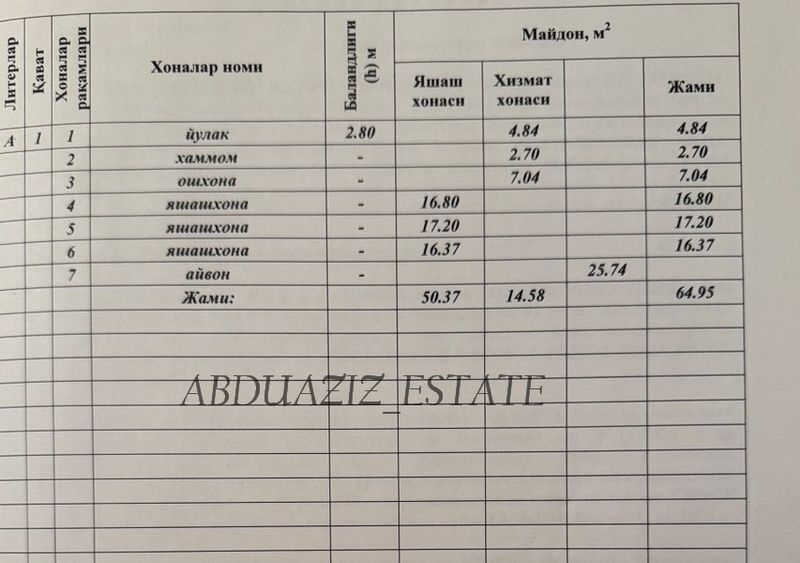 Литерлар Қават Хоналар рақамлари Хоналар номи Баландлиги (h) м Майдон, м²
Яшаш хонаси Хизмат хонаси Жами
А 1 1 йулак 2.80 4.84 4.84
2 хаммом - 2.70 2.70
3 ошхона - 7.04 7.04
4 яшашхона - 16.80 16.80
5 яшашхона - 17.20 17.20
6 яшашхона - 16.37 16.37
7 айвон - 25.74
Жами: 50.37 14.58 64.95
ABDUAZIZ_ESTATE